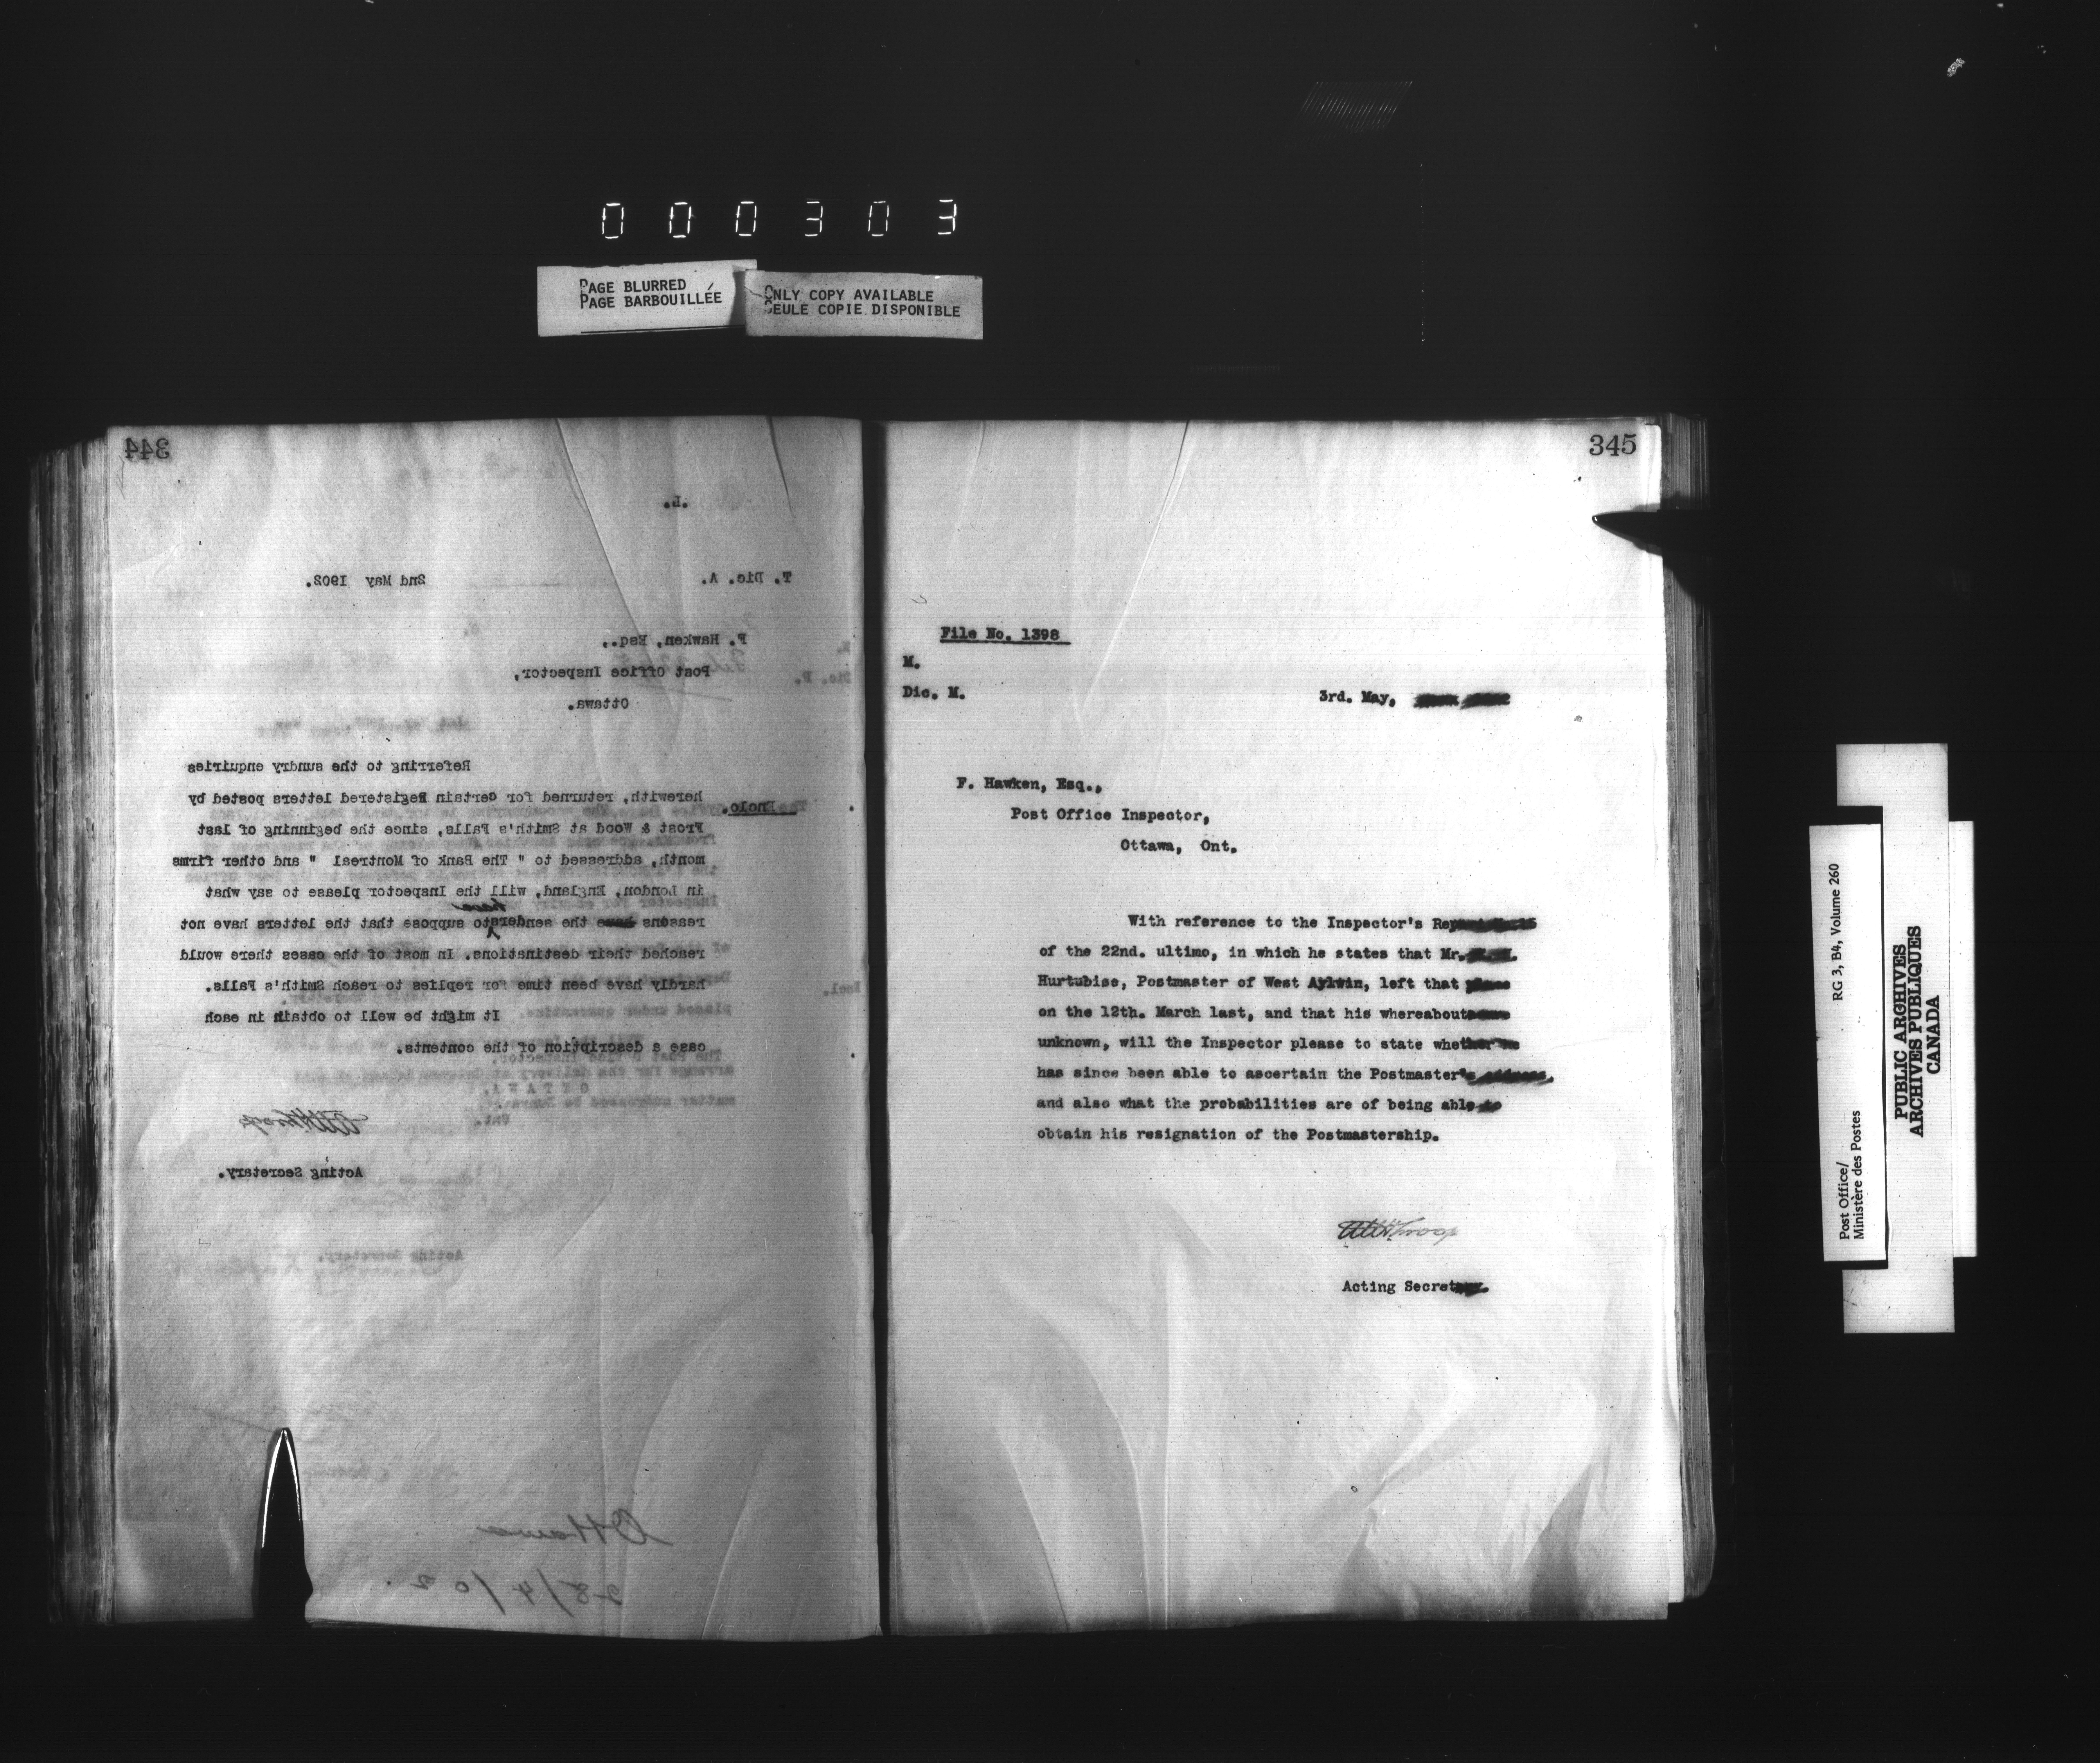 000303
PAGE BLURRED
PAGE BARBOUILLÉE
ONLY COPY AVAILABLE
SEULE COPIE DISPONIBLE
344
L.
T. Dic. A. 2nd May 1902.
F. Hawken, Esq.,
Post Office Inspector,
Ottawa.
Referring to the sundry enquiries
Enclo. herewith, returned for certain Registered letters posted by
Frost & Wood at Smith's Falls, since the beginning of last
month, addressed to " The Bank of Montreal " and other firms
in London, England, will the Inspector please to say what
reasons the senders have to suppose that the letters have not
reached their destinations. In most of the cases there would
hardly have been time for replies to reach Smith's Falls.
It might be well to obtain in each
case a description of the contents.
Acting Secretary.
Ottawa
28/4/02.
345
File No. 1398
M.
Dic. M. 3rd. May,
F. Hawken, Esq.,
Post Office Inspector,
Ottawa, Ont.
With reference to the Inspector's
of the 22nd. ultimo, in which he states that Mr.
Hurtubise, Postmaster of West Aylwin, left that
on the 12th. March last, and that his whereabouts
unknown, will the Inspector please to state whether
has since been able to ascertain the Postmaster's
and also what the probabilities are of being able
obtain his resignation of the Postmastership.
Acting Secretary.
Post Office/
Ministère des Postes
RG 3, B4, Volume 260
PUBLIC ARCHIVES
ARCHIVES PUBLIQUES
CANADA